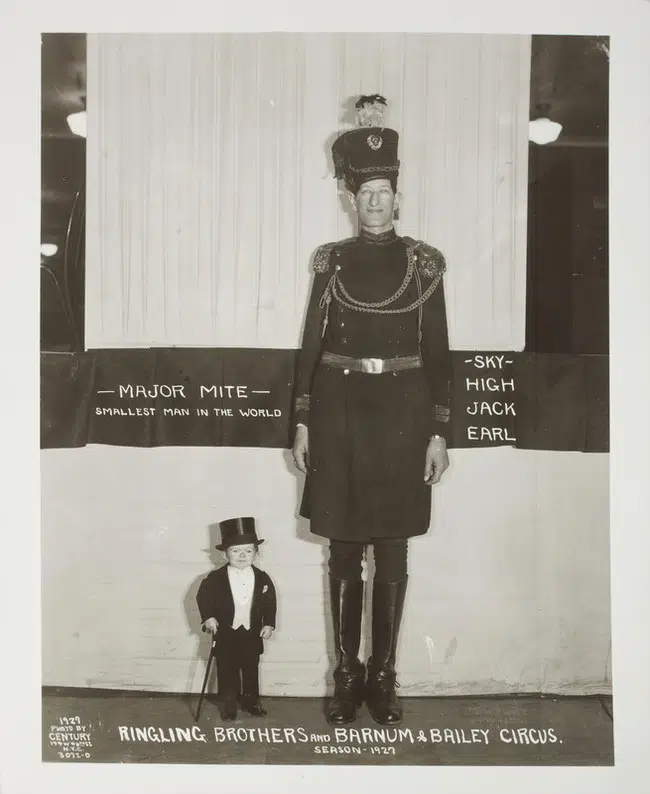 —MAJOR MITE—
SMALLEST MAN IN THE WORLD
-SKY-
HIGH
JACK
EARL
1927
PHOTO BY
CENTURY
N.Y.C.
RINGLING BROTHERS AND BARNUM & BAILEY CIRCUS.
SEASON-1927